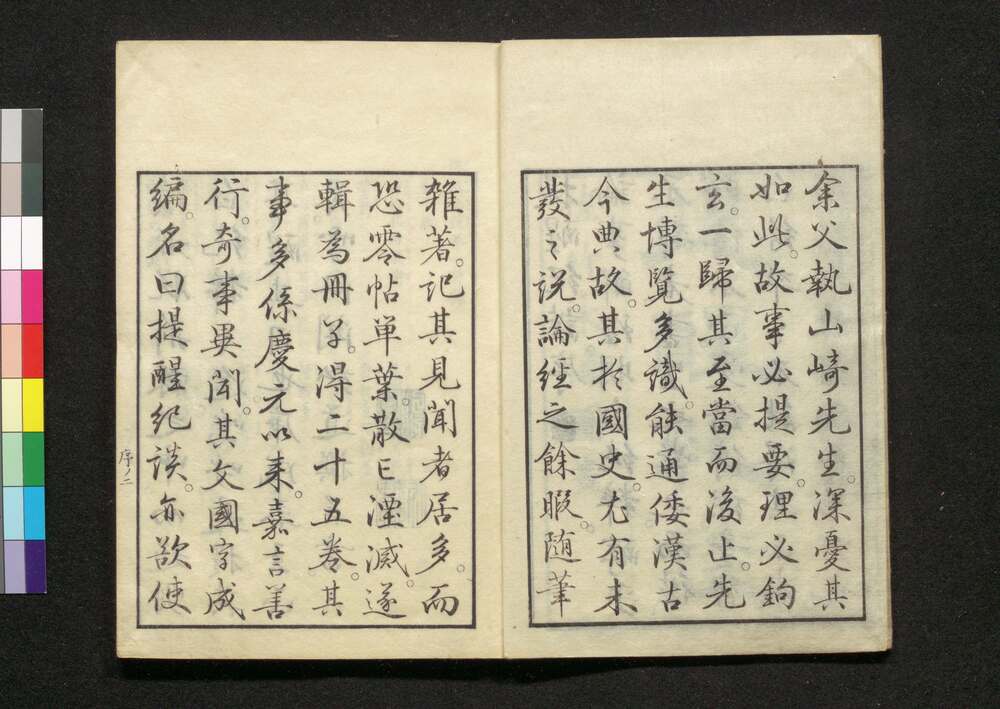 余父執山崎先生。深憂其
如此。故事必提要。理必鉤
玄。一歸其至當而後止。先
生博覽多識。能通倭漢古
今典故。其於國史。尤有未
發之説。論經之餘暇。随筆
雑著。記其見聞者居多。而
恐零帖単葉。散亡湮滅。遂
輯為冊子。得二十五巻。其
事多係慶元以来。嘉言善
行。奇事異聞。其文國字成
編。名曰提醒紀談。亦欲使
序ノ二